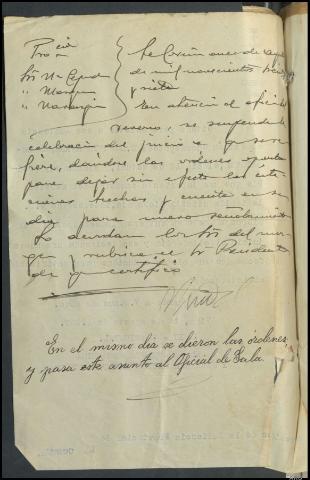 Pro cia
Srs Mn
" Marqu
" Naranjo
La Coruña once de
de mil novecientos treinta
y siete
En atención al oficio
reserva, se suspende la
celebración del juicio a que se re-
fiere, dándose las ordenes
para dejar sin efecto las cita-
ciones hechas y cuenta en su
dia para nuevo señalamiento
Lo acuerdan los Srs del mar-
gen y rubrica el Sr Presidente
de que certifico
En el mismo dia se dieron las órdenes,
y pasa este asunto al Oficial de Sala.